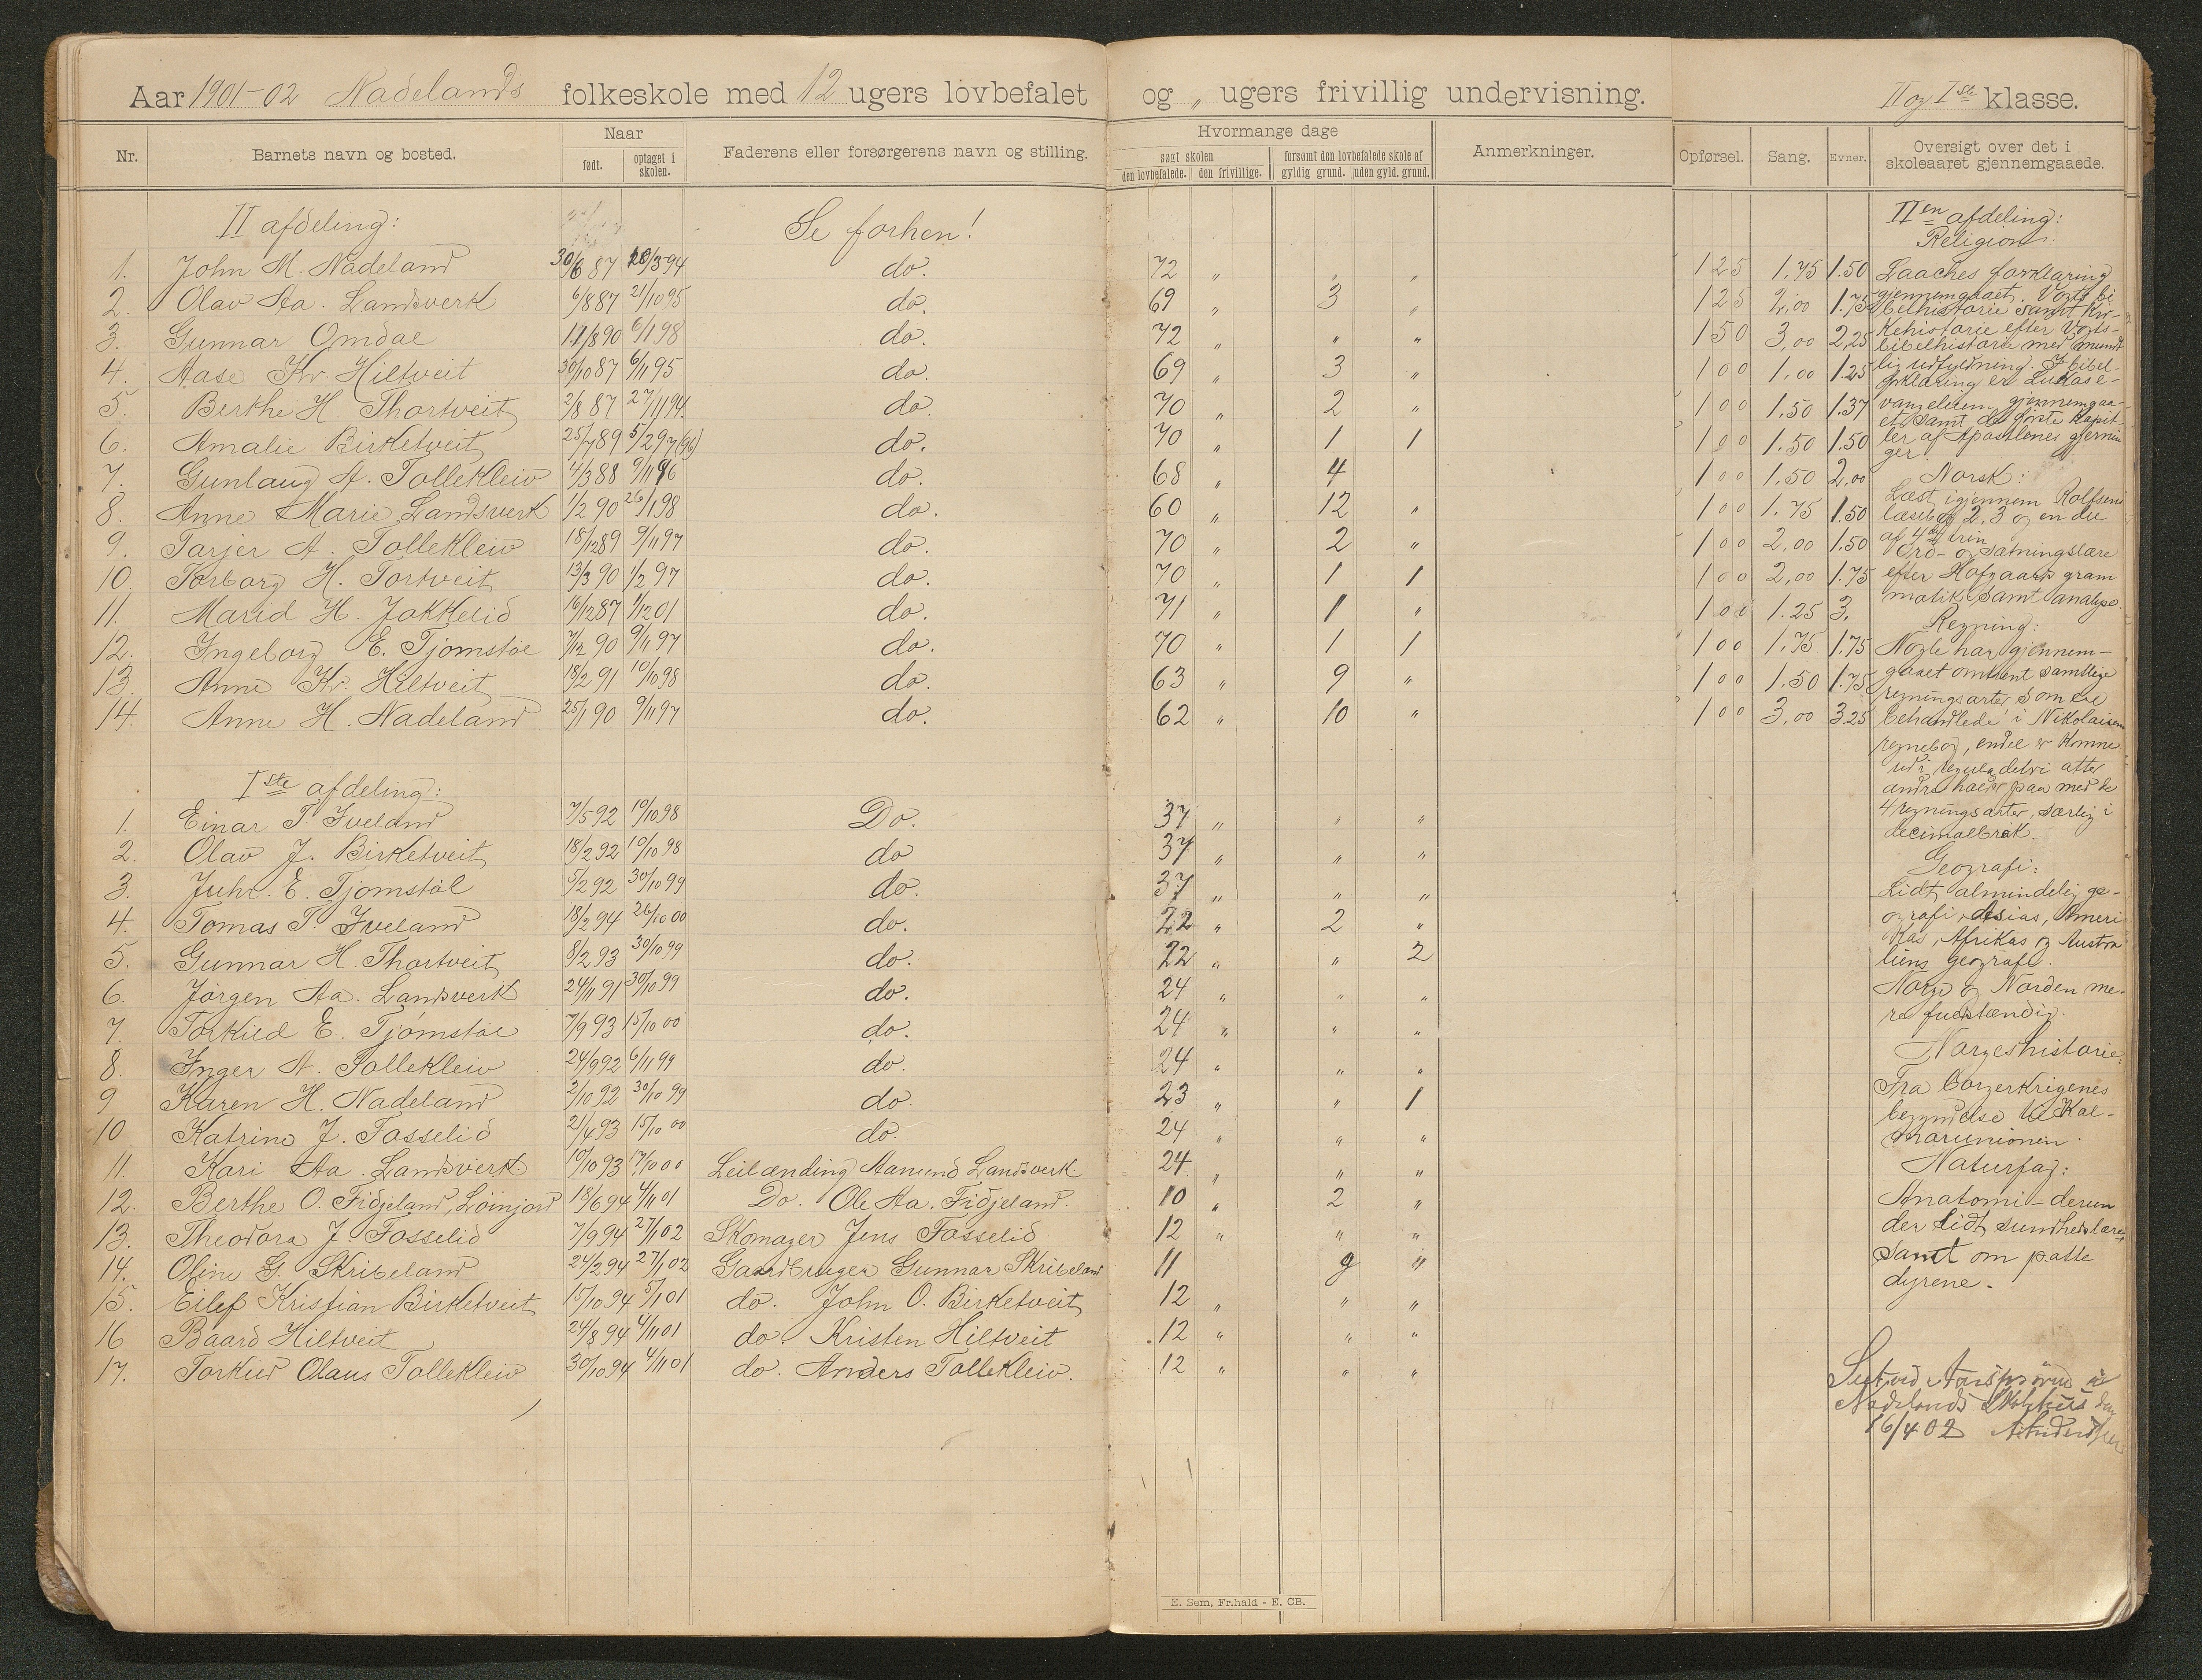 Aar 1901-02 Nadelands folkeskole med 12 ugers lovbefalet og " ugers frivillig undervisning. II og Iste klasse.
Nr. Barnets navn og bosted. Naar født. optaget i skolen. Faderens eller forsørgerens navn og stilling. Hvormange dage søgt skolen den lovbefalede. den frivillige. forsømt den lovbefalede skole af gyldig grund. uden gyld. grund. Anmerkninger. Opførsel. Sang. Evner. Oversigt over det i skoleaaret gjennemgaaede.
II afdeling: Se forhen!
1. John M. Nadeland 30/6 87 26/3 94 do. 72 " " " 125 1.75 1.50
2. Olav Aa. Landsverk 6/8 87 21/10 95 do. 69 " 3 " 125 2,00 1.75
3. Gunnar Omdal 11/8 90 6/1 98 do. 72 " " " 150 3,00 2,25
4. Aase Kr. Hiltveit 30/10 87 6/11 95 do. 69 " 3 " 100 1.00 1.25
5. Berthe H. Thortveit 2/8 87 27/11 94 do. 70 " 2 " 100 1.50 1.37
6. Amalie Birketveit 25/7 89 5/2 97 (96) do. 70 " 1 1 100 1.50 1.50
7. Gunlaug A. Tollekleiv 4/3 88 9/11 96 do. 68 " 4 100 1.50 2,00
8. Anne Marie Landsverk 1/2 90 26/1 98 do. 60 " 12 " 100 1.75 1.50
9. Tarjer A. Tollekleiv 18/12 89 9/11 97 do. 70 " 2 " 100 2,00 1.50
10. Torborg H. Tortveit 13/3 90 1/2 97 do. 70 " 1 1 100 2,00 1.75
11. Marid H. Jakkelid 16/12 87 1/12 01 do. 71 " 1 " 100 1.25 3.
12. Ingeborg E. Tjomstøl 7/12 90 9/11 97 do. 70 " 1 1 100 1.75 1.75
13. Anne Kr. Hiltveit 18/2 91 10/10 98 do. 63 " 9 " 100 1.50 1.75
14. Anne H. Nadeland 25/1 90 9/11 97 do. 62 " 10 " 100 3,00 3.25
Iste afdeling:
1. Einar T. Iveland 7/5 92 10/10 98 Do. 37 " " "
2. Olav J. Birketveit 18/2 92 10/10 98 do 37 " " "
3. Juhl E. Tjomstøl 5/2 92 30/10 99 do. 37 " " "
4. Tomas T. Iveland 18/2 94 26/10 00 do. 22 " 2 "
5. Gunnar H. Thortveit 8/2 93 30/10 99 do. 22 " " 2
6. Jørgen Aa. Landsverk 24/11 91 30/10 99 do. 24 " " "
7. Torkild E. Tjømstøl 7/9 93 15/10 00 do. 24 " " "
8. Inger A. Tollekleiv 24/9 92 6/11 99 do. 24 " " "
9 Karen H. Nadeland 2/10 92 30/10 99 do. 23 " " 1
10 Katrine J. Fosselid 21/4 93 15/10 00 do. 24 " " "
11. Kari Aa. Landsverk 10/10 93 17/10 00 Leilænding Aanund Landsverk. 24 " " "
12. Berthe O. Fidjeland, Løinjord 18/6 94 4/11 01 Do. Ole Aa. Fidjeland. 10 " 2 "
13. Theodora J. Fosselid 7/9 94 27/1 02 Skomager Jens Fosselid 12 " " "
14. Oline G. Skribeland 24/2 94 27/1 02 Gaardbruger Gunnar Skribeland 11 9 "
15. Eilef Kristian Birketveit 15/10 94 5/1 01 do. John O. Birketveit 12 " " "
16 Baard Hiltveit 24/8 94 4/11 01 do. Kristen Hiltveit 12 " " "
17. Torkild Olaus Tollekleiv 30/10 94 4/11 01 do. Anders Tollekleiv. 12 " " "
IIen afdeling:
Religion:
Laaches forklaring
gjennemgaaet. Vogts bi
belhistorie samt kir-
kehistorie efter Vogts
bibelhistorie med mundt
lig udfyldning. I bibel-
forklaring er Lukas e-
vangelium gjennemgaa-
et samt de første kapit-
ler af Apostlenes gjernin
ger.
Norsk:
Læst igjennem Rolfsens
læsebog 2. 3 og en del
af 4de trin
Ord- og sætningslære
efter Hofgaards gram
matik samt analyse.
Regning:
Nogle har gjennem-
gaaet omtrent samtlige
regningsarter som er
behandlede i Nikolaisens
regnebog, endel er komne
ud i reguladetri atter
andre holder paa med de
4 regningsarter, særlig i
decimalbrøk.
Geografi:
Lidt almindelig ge-
ografi, Asias, Ameri
kas, Afrikas og Austra
liens geografi.
Norge og Norden me-
re fuldstændig.
Norgeshistorie:
Fra borgerkrigenes
begyndelse til Kal-
marunionen.
Naturfag:
Anatomi - derun
der lidt sundhedslære
samt om patte
dyrene.
Seet ved Aarsprøven i
Nadelands Skolehus den
16/4 02
E. Sem, Fr.hald - E. CB.